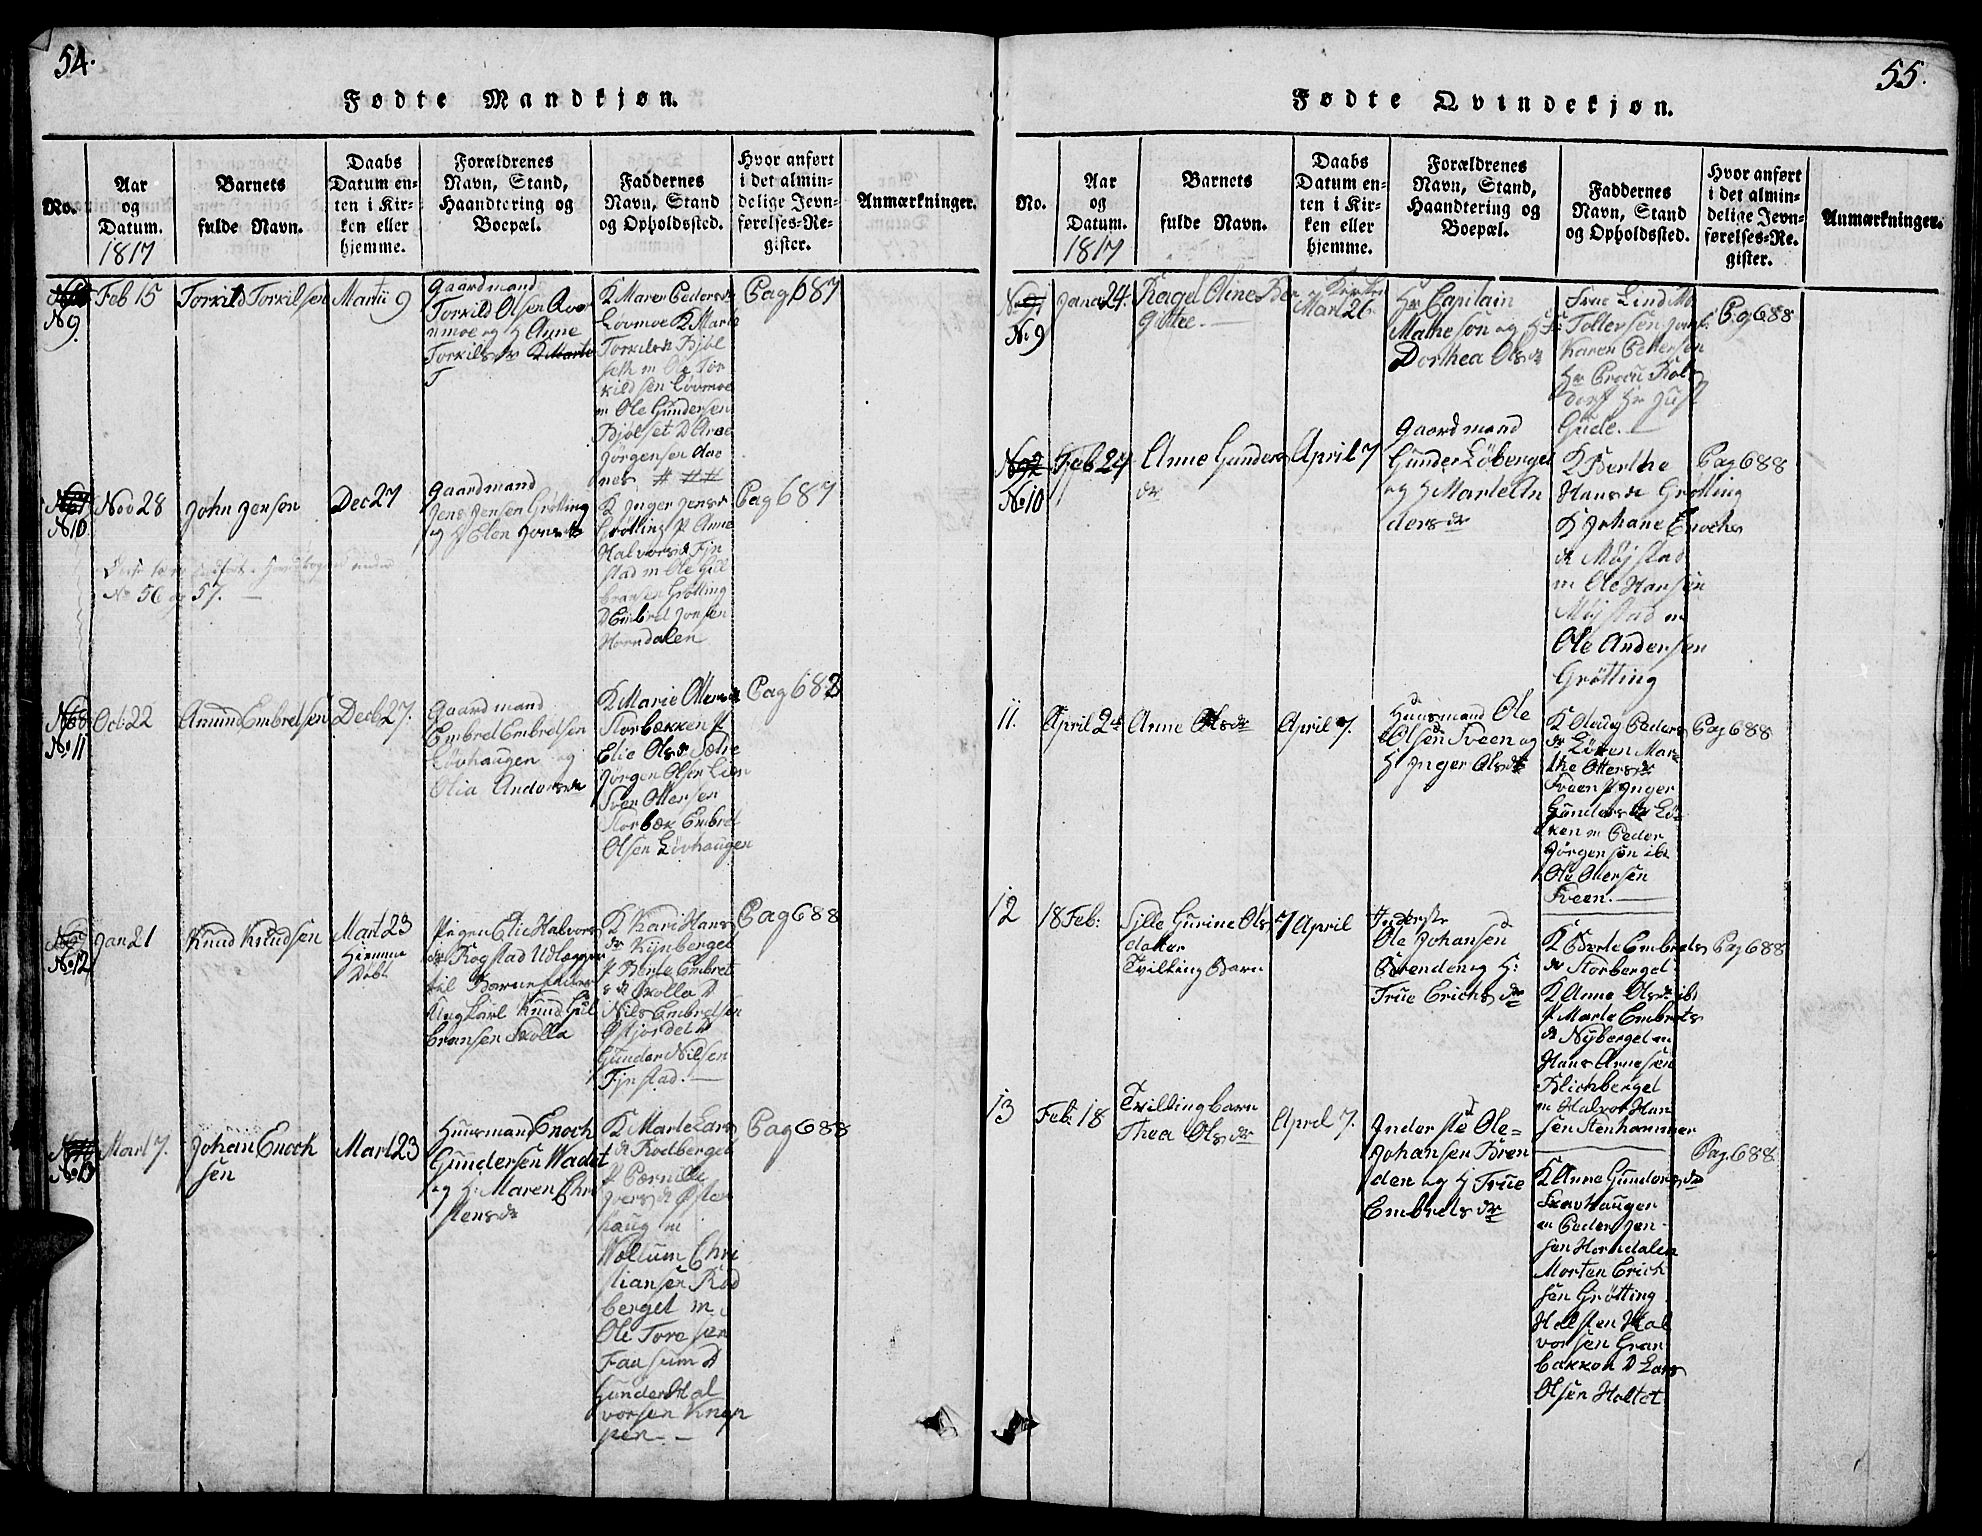 54.
Fødte Mandkjøn.
No.
Aar
og
Datum.
1817
Barnets
fulde Navn.
Daabs
Datum en-
ten i Kir-
ken eller
hjemme.
Forældrenes
Navn, Stand,
Haandtering og
Boepæl.
Faddernes
Navn, Stand
og Opholdssted.
Hvor anført
i det almin-
delige Jevn-
førelses-Re-
gister.
Anmærkninger.
N 9.
Feb 15
Torkild Torkilsen
Martii 9
Gaardmand
Torkild Olsen
moe og H Anne
Torkilsdr
K Maren Pedersdr
Løvmoe K Marte
Torkildsdr Bjøl
seth m Ole Tor
kildsen Løvmoe
m Ole Gundersen
Bjølset D Arne
Jørgensen Aae
nes
Pag 687
No 10
Nov 28
John Jensen
Dec 27
Gaardmand
Jens Jensen Grøtting
og H Elen Jonsdr
K Inger Jensdr
Grøtting P Anne
Halvorsdr Fjn
stad m Ole Gull
bransen Grøtting
D Embret Jonsen
Horndalen
Pag 687
No 56 og 57.
No 11
Oct: 22
Amund Embretsen
Decb 27.
Gaardmand
Embret Embretsen
Løvhaugen og
Olia Andersdr
K Marie Ottersdr
Storbækken P
Elie Olsdr Sætre
Jørgen Olsen Lien
Sven Ottersen
Storbæk Embret
Olsen Løvhaugen
Pag 688
No 12
Jan 21
Knud Knudsen
Mart 23
Hiemme
Døbt
Pigen Elie Halvors
dr Rogstad Udlægger
til Barnefader
Ungkarl Knud Gul
bransen Skolla
K Kari Hans
dr Kynberget
P Berte Embret
sdr Skolla D
Nils Embretsen
Østjordet D
Gunder Nilsen
Fjnstad.
Pag 688
No 13
Mart 7.
Johan Enoch
sen
Mart 23
Huusmand Enoch
Gundersen Wadet
og H: Maren Chri
stensdr
K Marte Lars
dr Rodberget
P Pernille
Iversdr Øster
haug m
Wollum Chri
stiansen Rød
berget m
Ole Toresen
Faasum D
Gunder Hal
vorsen Knap
pen
Pag 688
55.
Fødte Qvindekjøn.
No.
Aar
og
Datum.
1817
Barnets
fulde Navn.
Daabs
Datum en-
ten i Kir-
ken eller
hjemme.
Forældrenes
Navn, Stand,
Haandtering og
Boepæl.
Faddernes
Navn, Stand
og Opholdssted.
Hvor anført
i det almin-
delige Jevn-
førelses-Re-
gister.
Anmærkninger.
No 9
Jana 24.
Ragel Oline Ber
gitte.
Mart 26
Hr Capitain
Matheson og H: Fr:
Dorthea Olsdr
Frue Lind Mo
Tollersen
Karen Pettersen
Hr Just
Gude.
Pag 688
No 10
Feb 24
Anne Gunders
dr
April 7
Gaardmand
Gunder Løberget
og H Marte An
dersdr
K Berthe
Hansdr Grøtting
K Johane Enochs
dr Møjstad
m Ole Hansen
Møjstad m
Ole Andersen
Grøtting
Pag 688
11.
April 2
Anne Olsdr
April 7.
Huusmand Ole
Olsen Sveen og
H Inger Olsdr
K Oleug Peders
dr Løken Mar
the Ottersdr
Sveen P Inger
Gundersdr Lø
ken m Peder
Jørgensen ib:
Ole Ottersen
Sveen.
Pag 688
12
18 Feb:
Sille Gurine Ols
datter
Tvilling Barn
7 April
Inderste
Ole Johansen
Brenden og H:
True Erichsdr
K Berte Embrets
dr Storberget
K Anne Olsdr ib:
P Marte Embrets
dr Nyberget m
Hans Arnesen
Blichberget
m Halvor Han
sen Stenhammer
Pag 688
13
Feb: 18
Tvilling barn
Thea Olsdr
April 7.
Inderste Ole
Johansen Bren
den og H True
Embretsdr
K Anne Gundersdr
Skovhaugen
m Peder Jen
sen Horndalen
Morten Erich
sen Grøtting
Halsten Hal
vorsen Gran
bakken D Lars
Olsen Holtet
Pag. 688.